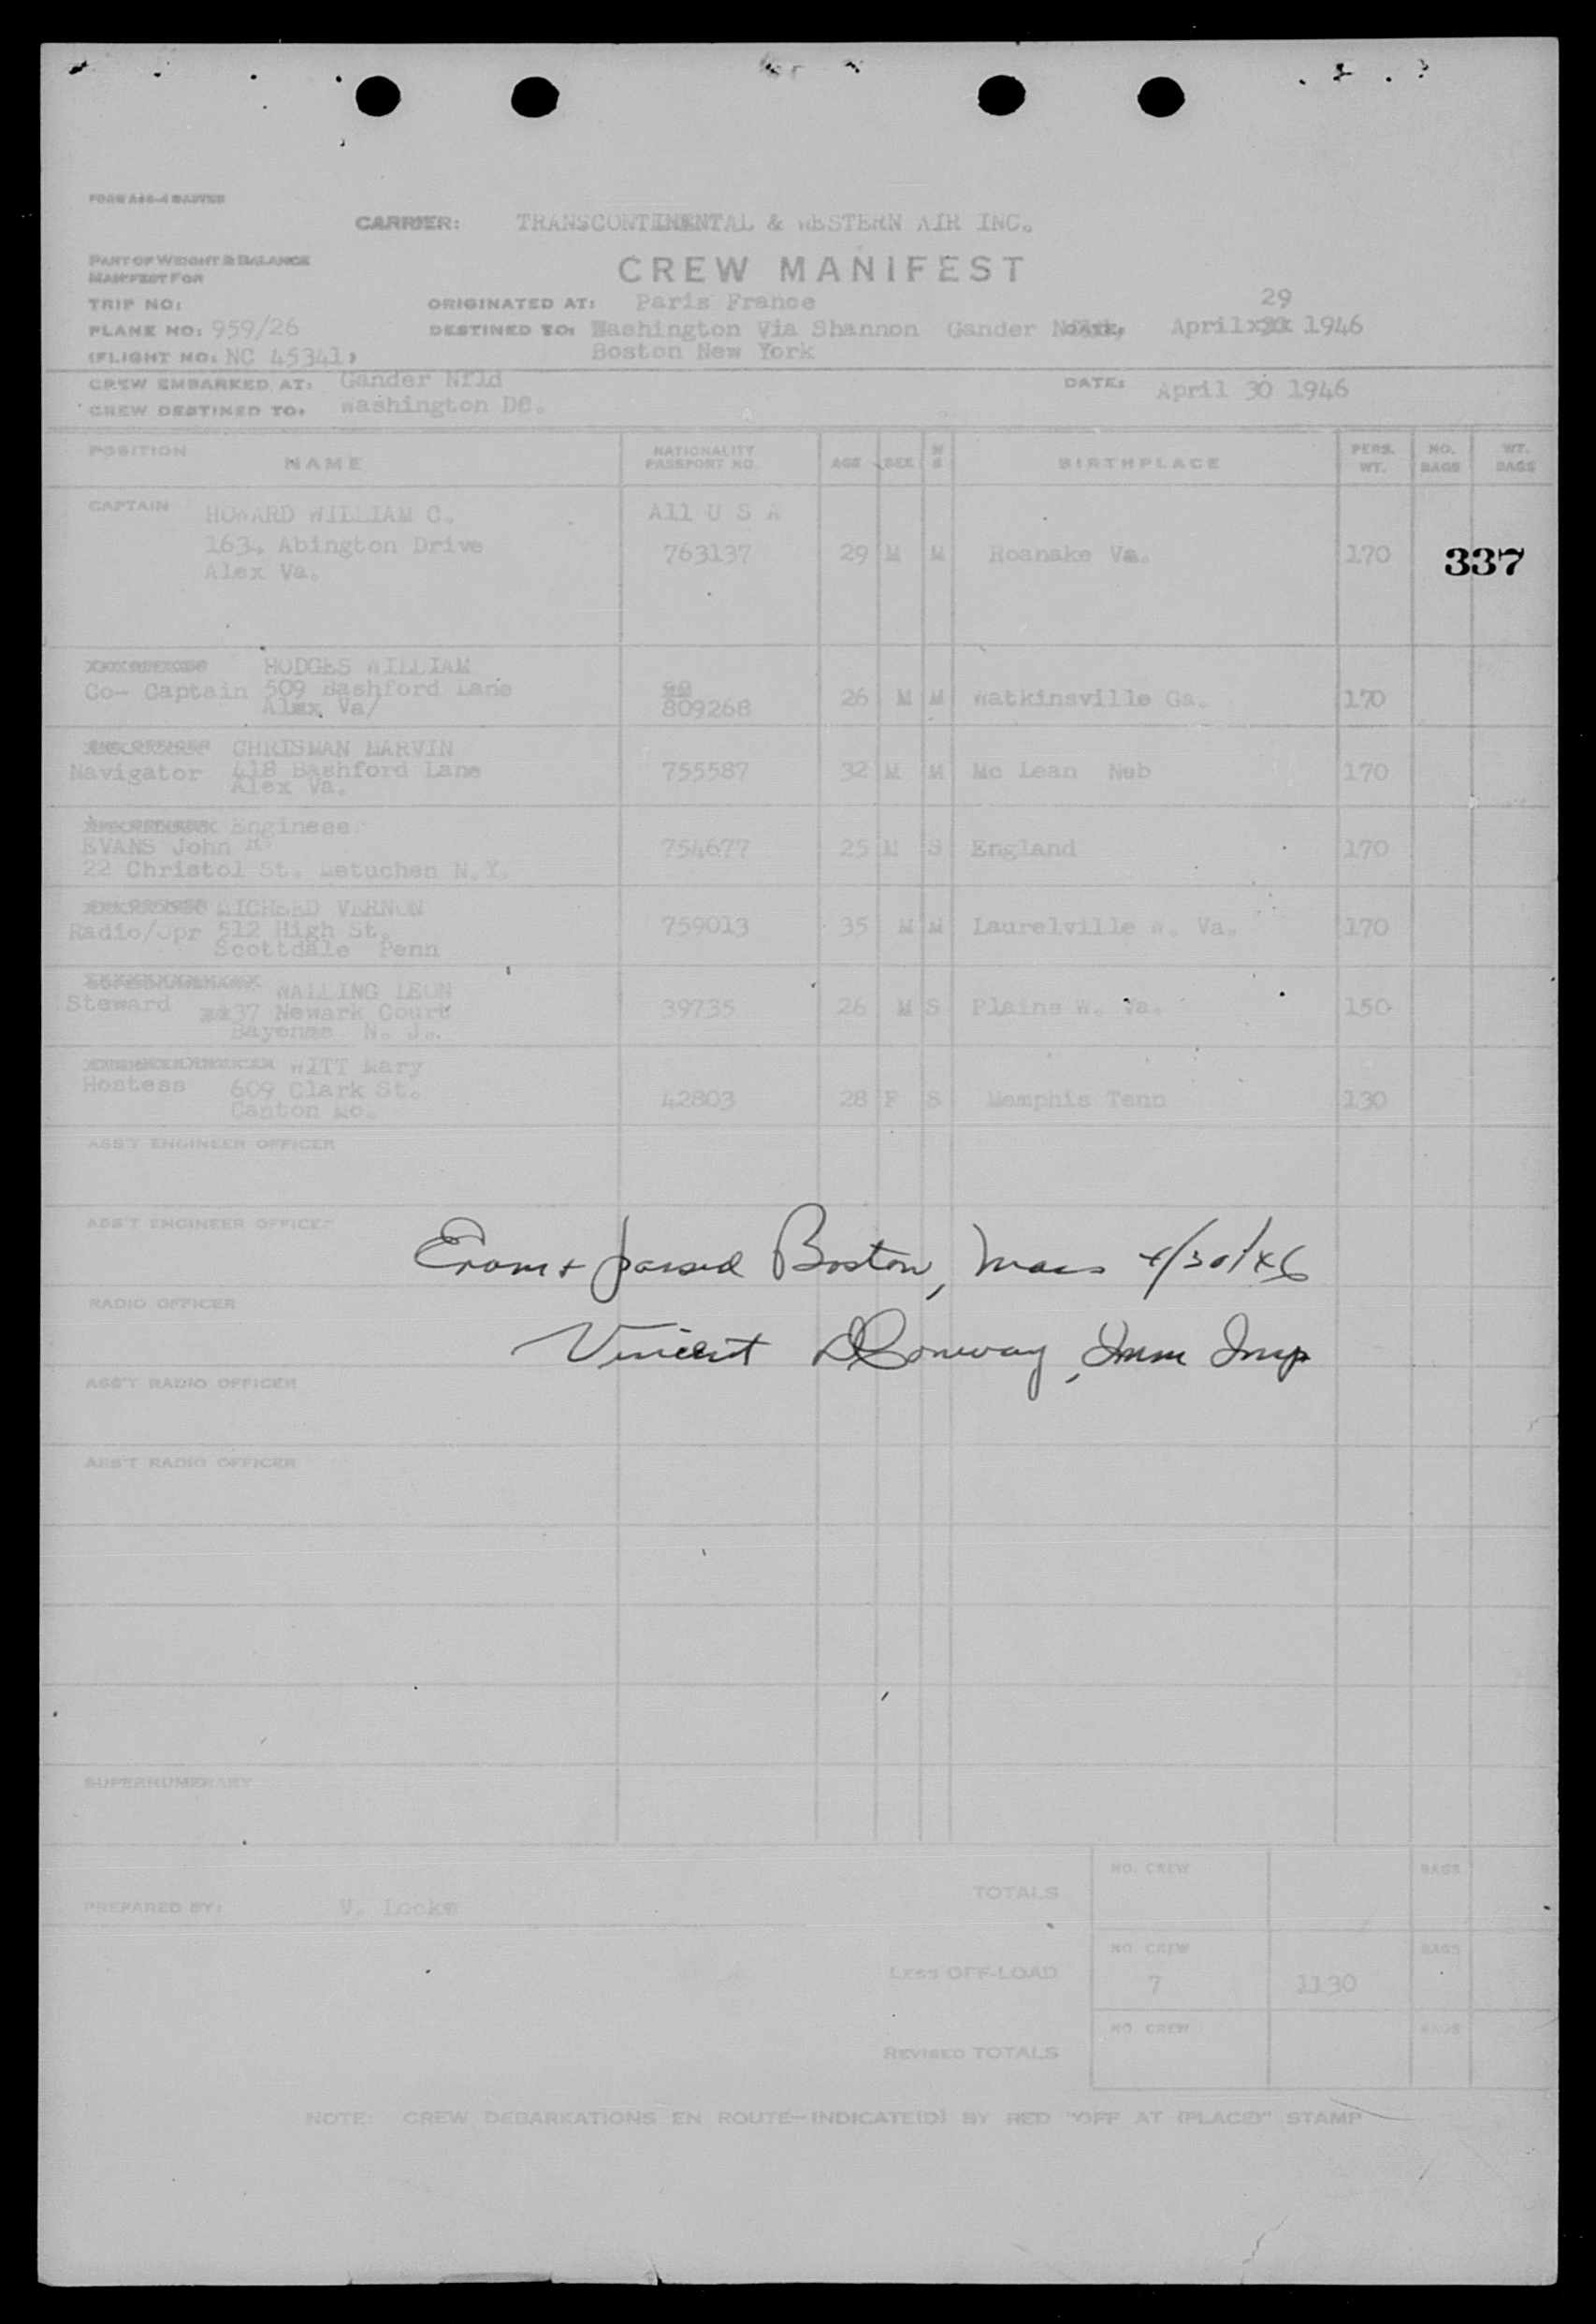 CARRIER: TRANSCONTINENTAL & WESTERN AIR INC.
PART OF WEIGHT & BALANCE
MANIFEST FOR
CREW MANIFEST
TRIP NO:
ORIGINATED AT: Paris France
29
PLANE NO: 959/26
DESTINED TO: Washington Via Shannon Gander DATE: April 1946
(FLIGHT NO: NC 45341)
Boston New York
CREW EMBARKED AT: Gander Nfld
DATE: April 30 1946
CREW DESTINED TO: Washington DC.
POSITION NAME NATIONALITY PASSPORT NO. AGE SEX M S BIRTHPLACE PERS. WT. NO. BAGS WT. BAGS
CAPTAIN HOWARD WILLIAM C. All U S A
163, Abington Drive 763137 29 M M Roanake Va. 170 337
Alex Va.
HODGES WILLIAM
Co- Captain 509 Bashford Lane 26 M M Watkinsville Ga. 170
Alex Va/ 809268
CHRISMAN MARVIN
Navigator 418 Bashford Lane 755587 32 M M Mc Lean Neb 170
Alex Va.
Engineer
EVANS John 754677 25 M S England 170
22 Christol St. Metuchen N.Y.
VERNON
Radio/Opr 512 High St. 759013 35 M M Laurelville W. Va. 170
Scottdale Penn
WALLING LEON
Steward 37 Newark Court 39735 26 M S Plains W. Va. 150
Bayonne N. J.
WITT Mary
Hostess 609 Clark St. 42803 28 F S Memphis Tenn 130
Canton Mo.
ASS'T ENGINEER OFFICER
ASS'T ENGINEER OFFICER
Exam + passed Boston, Mass 4/30/46
RADIO OFFICER
Vincent D Conway, Imm Insp
ASS'T RADIO OFFICER
ASS'T RADIO OFFICER
SUPERNUMERARY
NO. CREW BAGS
PREPARED BY: V. Locke TOTALS
NO. CREW BAGS
LESS OFF-LOAD 7 1130
NO. CREW BAGS
REVISED TOTALS
NOTE: CREW DEBARKATIONS EN ROUTE—INDICATE(D) BY RED "OFF AT (PLACE)" STAMP